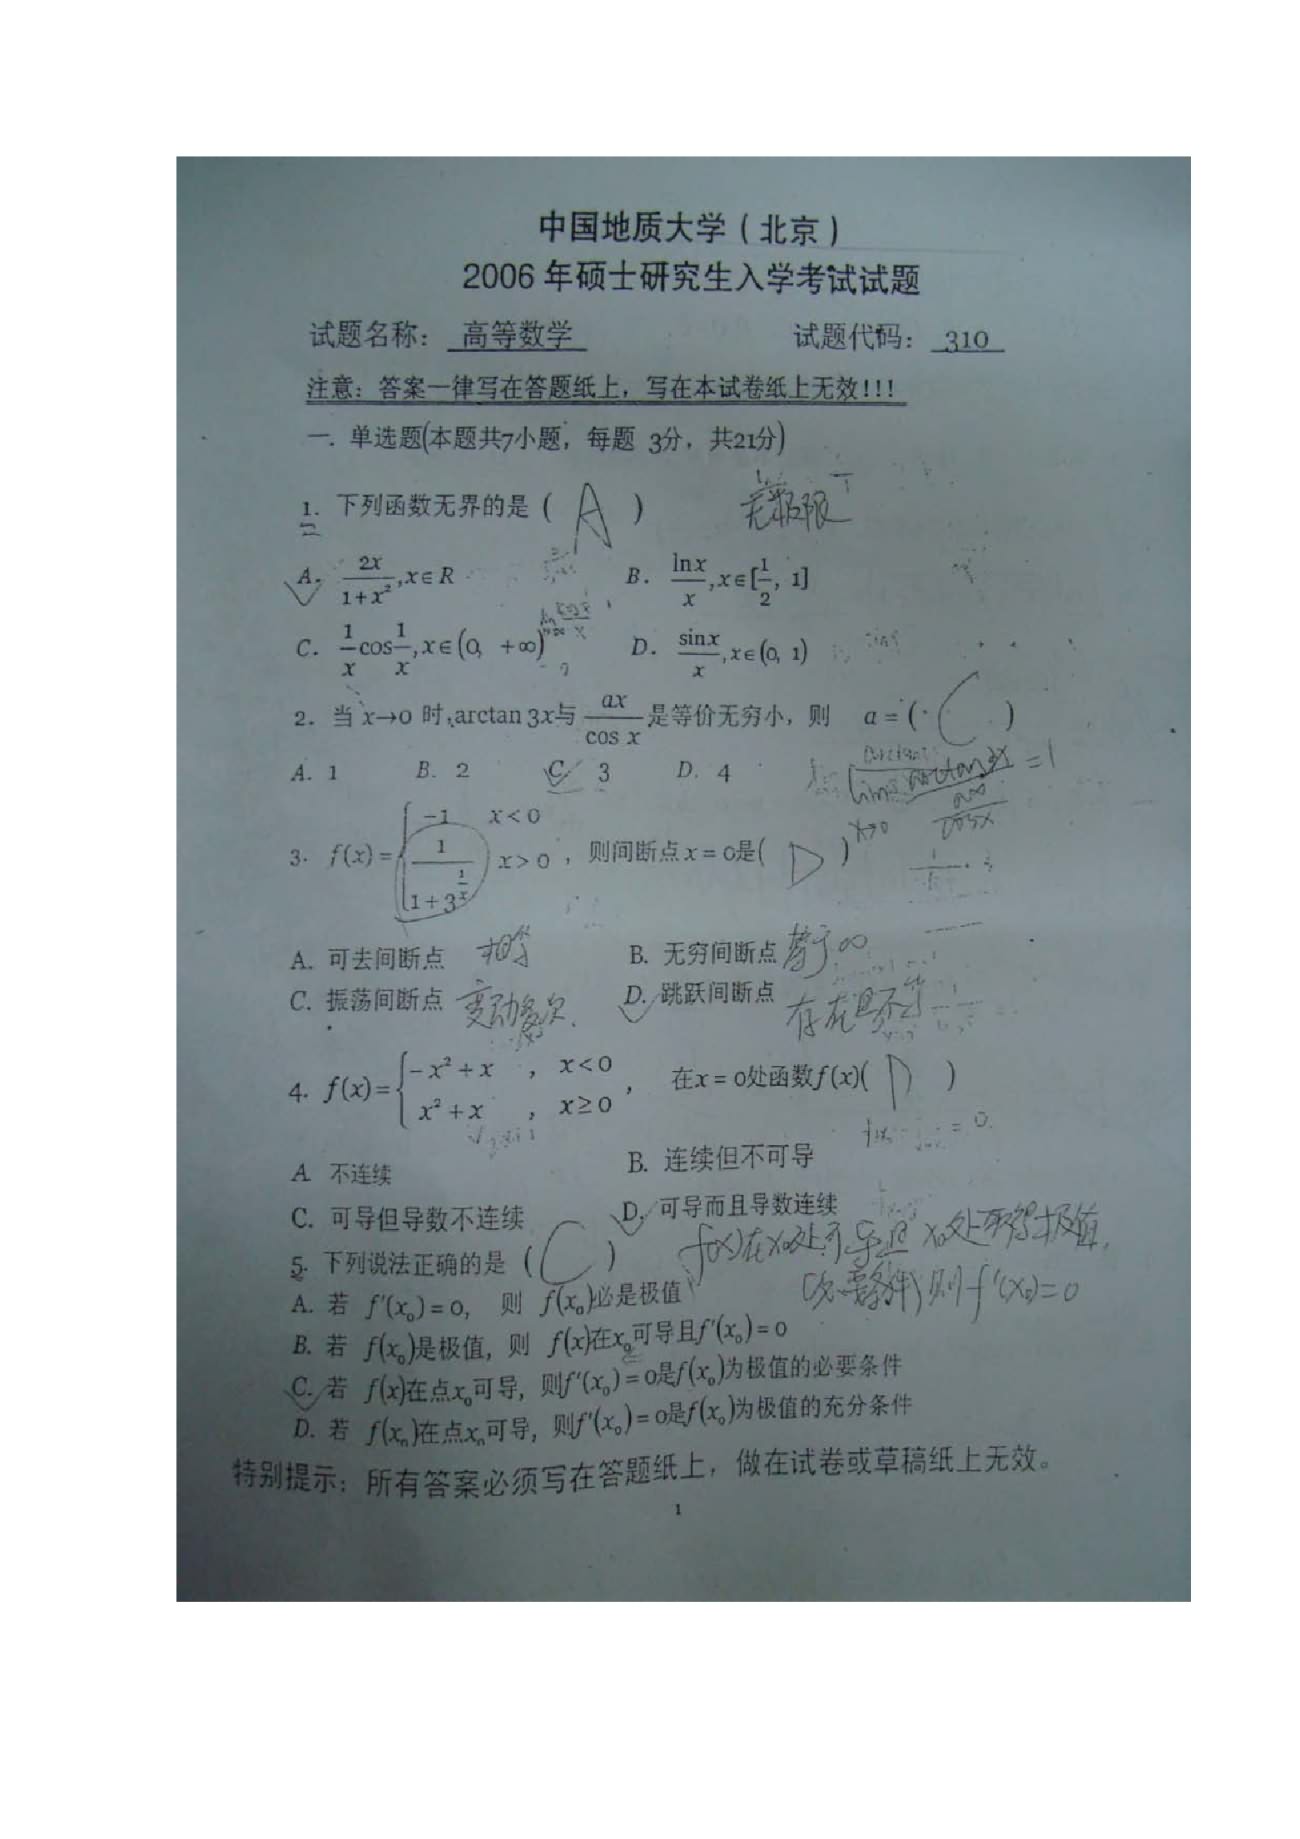 中国地质大学（北京）
2006 年硕士研究生入学考试试题
试题名称： 高等数学 试题代码： 310
注意：答案一律写在答题纸上，写在本试卷纸上无效!!!
一. 单选题(本题共7小题，每题 3分，共21分)
无极限
1. 下列函数无界的是 ( A )
A. 2x/(1+x²), x∈R B. lnx/x, x∈[1/2, 1]
C. 1/x cos 1/x, x∈(0, +∞) D. sinx/x, x∈(0, 1)
2. 当 x→0 时, arctan 3x与 ax/cos x 是等价无穷小，则 a = ( C )
A. 1 B. 2 C. 3 D. 4
lim x→0 arctan3x / (ax/cosx) = 1
3. f(x) = { -1 x<0
1/(1+3^(1/x)) x>0 ，则间断点 x = 0是( D )
A. 可去间断点 相等 B. 无穷间断点 等于∞
C. 振荡间断点 变动多次. D. 跳跃间断点 存在是不
4. f(x) = { -x² + x , x<0
x² + x , x≥0 , 在x = 0处函数f(x)( D )
= 0
A 不连续 B. 连续但不可导
C. 可导但导数不连续 D. 可导而且导数连续
f(x)在x₀处可导且 x₀处取得极值,
(必要条件) 则 f'(x₀)=0
5. 下列说法正确的是 ( C )
A. 若 f'(x₀) = 0, 则 f(x₀)必是极值
B. 若 f(x₀)是极值, 则 f(x)在x₀可导且f'(x₀) = 0
C. 若 f(x)在点x₀可导, 则f'(x₀) = 0是f(x₀)为极值的必要条件
D. 若 f(x₀)在点x₀可导, 则f'(x₀) = 0是f(x₀)为极值的充分条件
特别提示：所有答案必须写在答题纸上，做在试卷或草稿纸上无效。
1